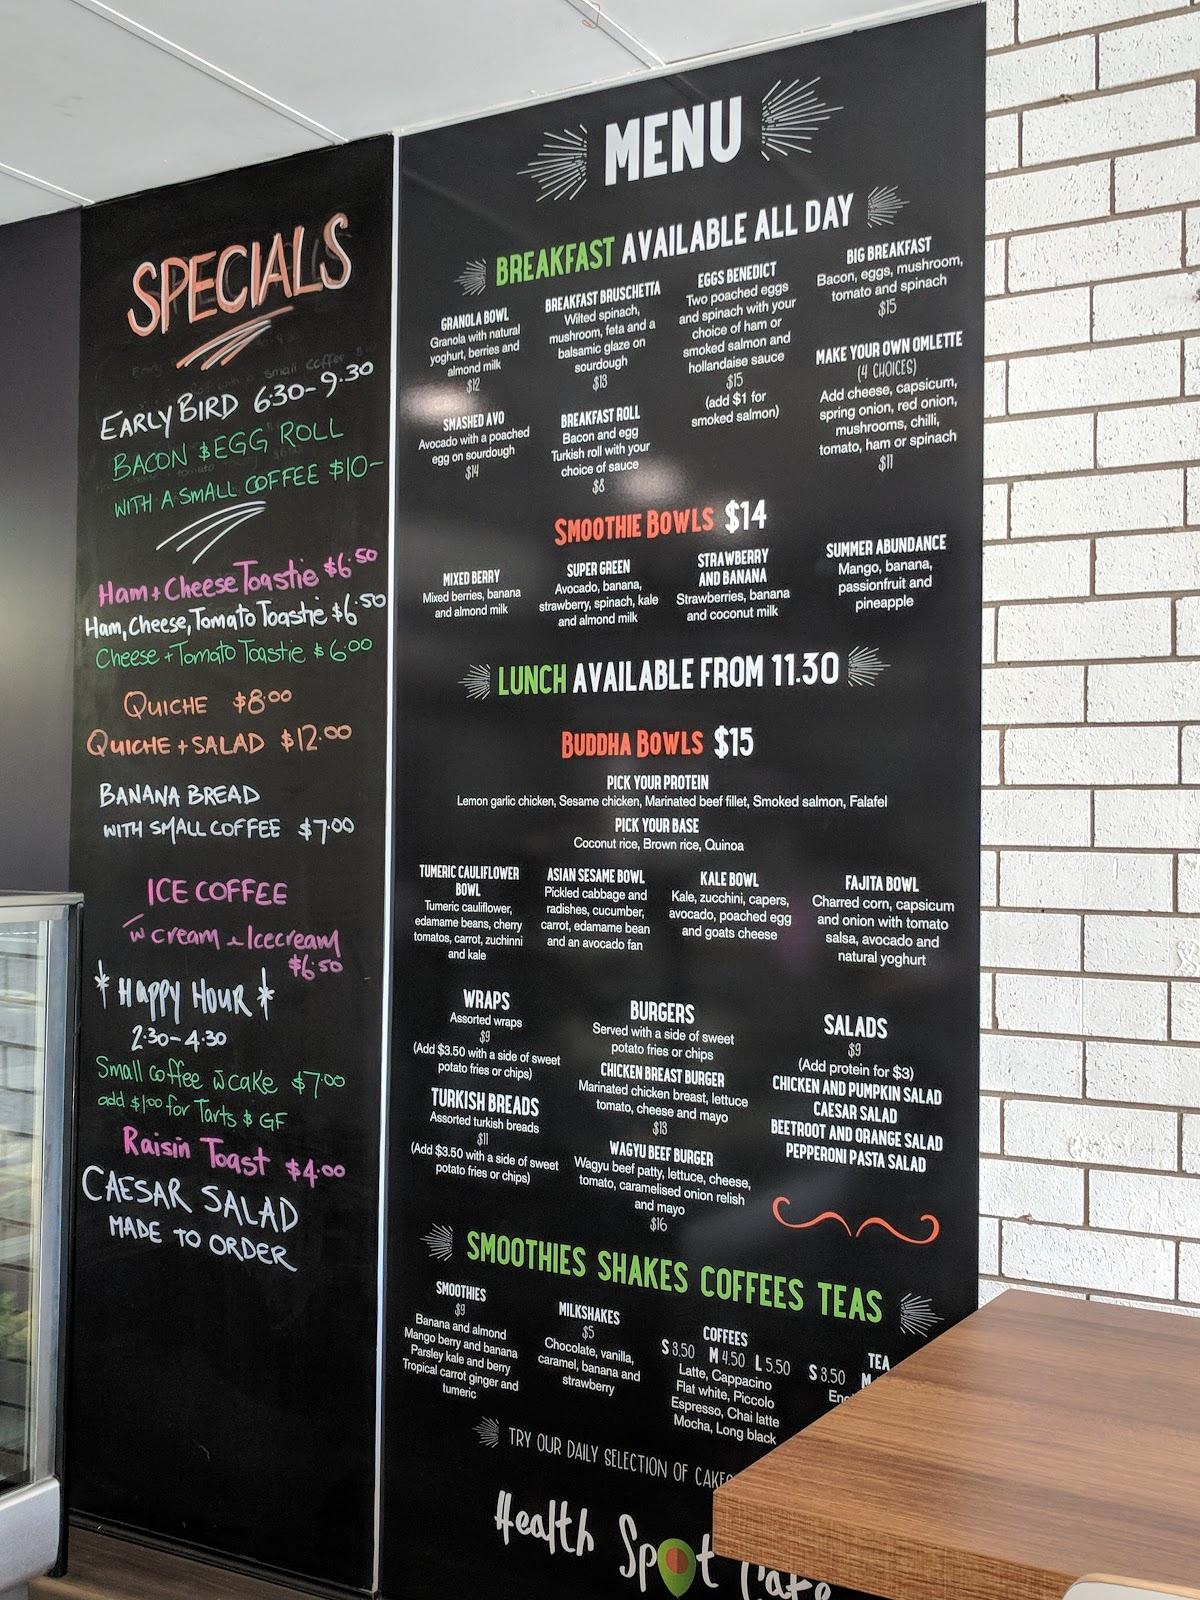 SPECIALS
EARLY BIRD 6:30-9.30
BACON & EGG ROLL
WITH A SMALL COFFEE $10-
Ham + Cheese Toastie $6.50
Ham, Cheese, Tomato Toastie $6.50
Cheese + Tomato Toastie $6.00
QUICHE $8.00
QUICHE + SALAD $12.00
BANANA BREAD
WITH SMALL COFFEE $7.00
ICE COFFEE
w cream + Icecream
$6.50
* Happy Hour *
2:30-4:30
Small coffee w cake $7.00
add $1.00 for Tarts & GF
Raisin Toast $4.00
CAESAR SALAD
MADE TO ORDER
MENU
BREAKFAST AVAILABLE ALL DAY
GRANOLA BOWL
Granola with natural
yoghurt, berries and
almond milk
$12
BREAKFAST BRUSCHETTA
Wilted spinach,
mushroom, feta and a
balsamic glaze on
sourdough
$13
EGGS BENEDICT
Two poached eggs
and spinach with your
choice of ham or
smoked salmon and
hollandaise sauce
$15
(add $1 for
smoked salmon)
BIG BREAKFAST
Bacon, eggs, mushroom,
tomato and spinach
$15
SMASHED AVO
Avocado with a poached
egg on sourdough
$14
BREAKFAST ROLL
Bacon and egg
Turkish roll with your
choice of sauce
$8
MAKE YOUR OWN OMLETTE
(4 CHOICES)
Add cheese, capsicum,
spring onion, red onion,
mushrooms, chilli,
tomato, ham or spinach
$11
SMOOTHIE BOWLS $14
MIXED BERRY
Mixed berries, banana
and almond milk
SUPER GREEN
Avocado, banana,
strawberry, spinach, kale
and almond milk
STRAWBERRY
AND BANANA
Strawberries, banana
and coconut milk
SUMMER ABUNDANCE
Mango, banana,
passionfruit and
pineapple
LUNCH AVAILABLE FROM 11.30
BUDDHA BOWLS $15
PICK YOUR PROTEIN
Lemon garlic chicken, Sesame chicken, Marinated beef fillet, Smoked salmon, Falafel
PICK YOUR BASE
Coconut rice, Brown rice, Quinoa
TUMERIC CAULIFLOWER
BOWL
Tumeric cauliflower,
edamame beans, cherry
tomatos, carrot, zuchinni
and kale
ASIAN SESAME BOWL
Pickled cabbage and
radishes, cucumber,
carrot, edamame bean
and an avocado fan
KALE BOWL
Kale, zucchini, capers,
avocado, poached egg
and goats cheese
FAJITA BOWL
Charred corn, capsicum
and onion with tomato
salsa, avocado and
natural yoghurt
WRAPS
Assorted wraps
$9
(Add $3.50 with a side of sweet
potato fries or chips)
TURKISH BREADS
Assorted turkish breads
$11
(Add $3.50 with a side of sweet
potato fries or chips)
BURGERS
Served with a side of sweet
potato fries or chips
CHICKEN BREAST BURGER
Marinated chicken breast, lettuce
tomato, cheese and mayo
$13
WAGYU BEEF BURGER
Wagyu beef patty, lettuce, cheese,
tomato, caramelised onion relish
and mayo
$16
SALADS
$9
(Add protein for $3)
CHICKEN AND PUMPKIN SALAD
CAESAR SALAD
BEETROOT AND ORANGE SALAD
PEPPERONI PASTA SALAD
SMOOTHIES SHAKES COFFEES TEAS
SMOOTHIES
$9
Banana and almond
Mango berry and banana
Parsley kale and berry
Tropical carrot ginger and
tumeric
MILKSHAKES
$5
Chocolate, vanilla,
caramel, banana and
strawberry
COFFEES
S 3.50 M 4.50 L 5.50
Latte, Cappacino
Flat white, Piccolo
Espresso, Chai latte
Mocha, Long black
TEA
S 3.50 M
TRY OUR DAILY SELECTION OF
Health Spot Cafe